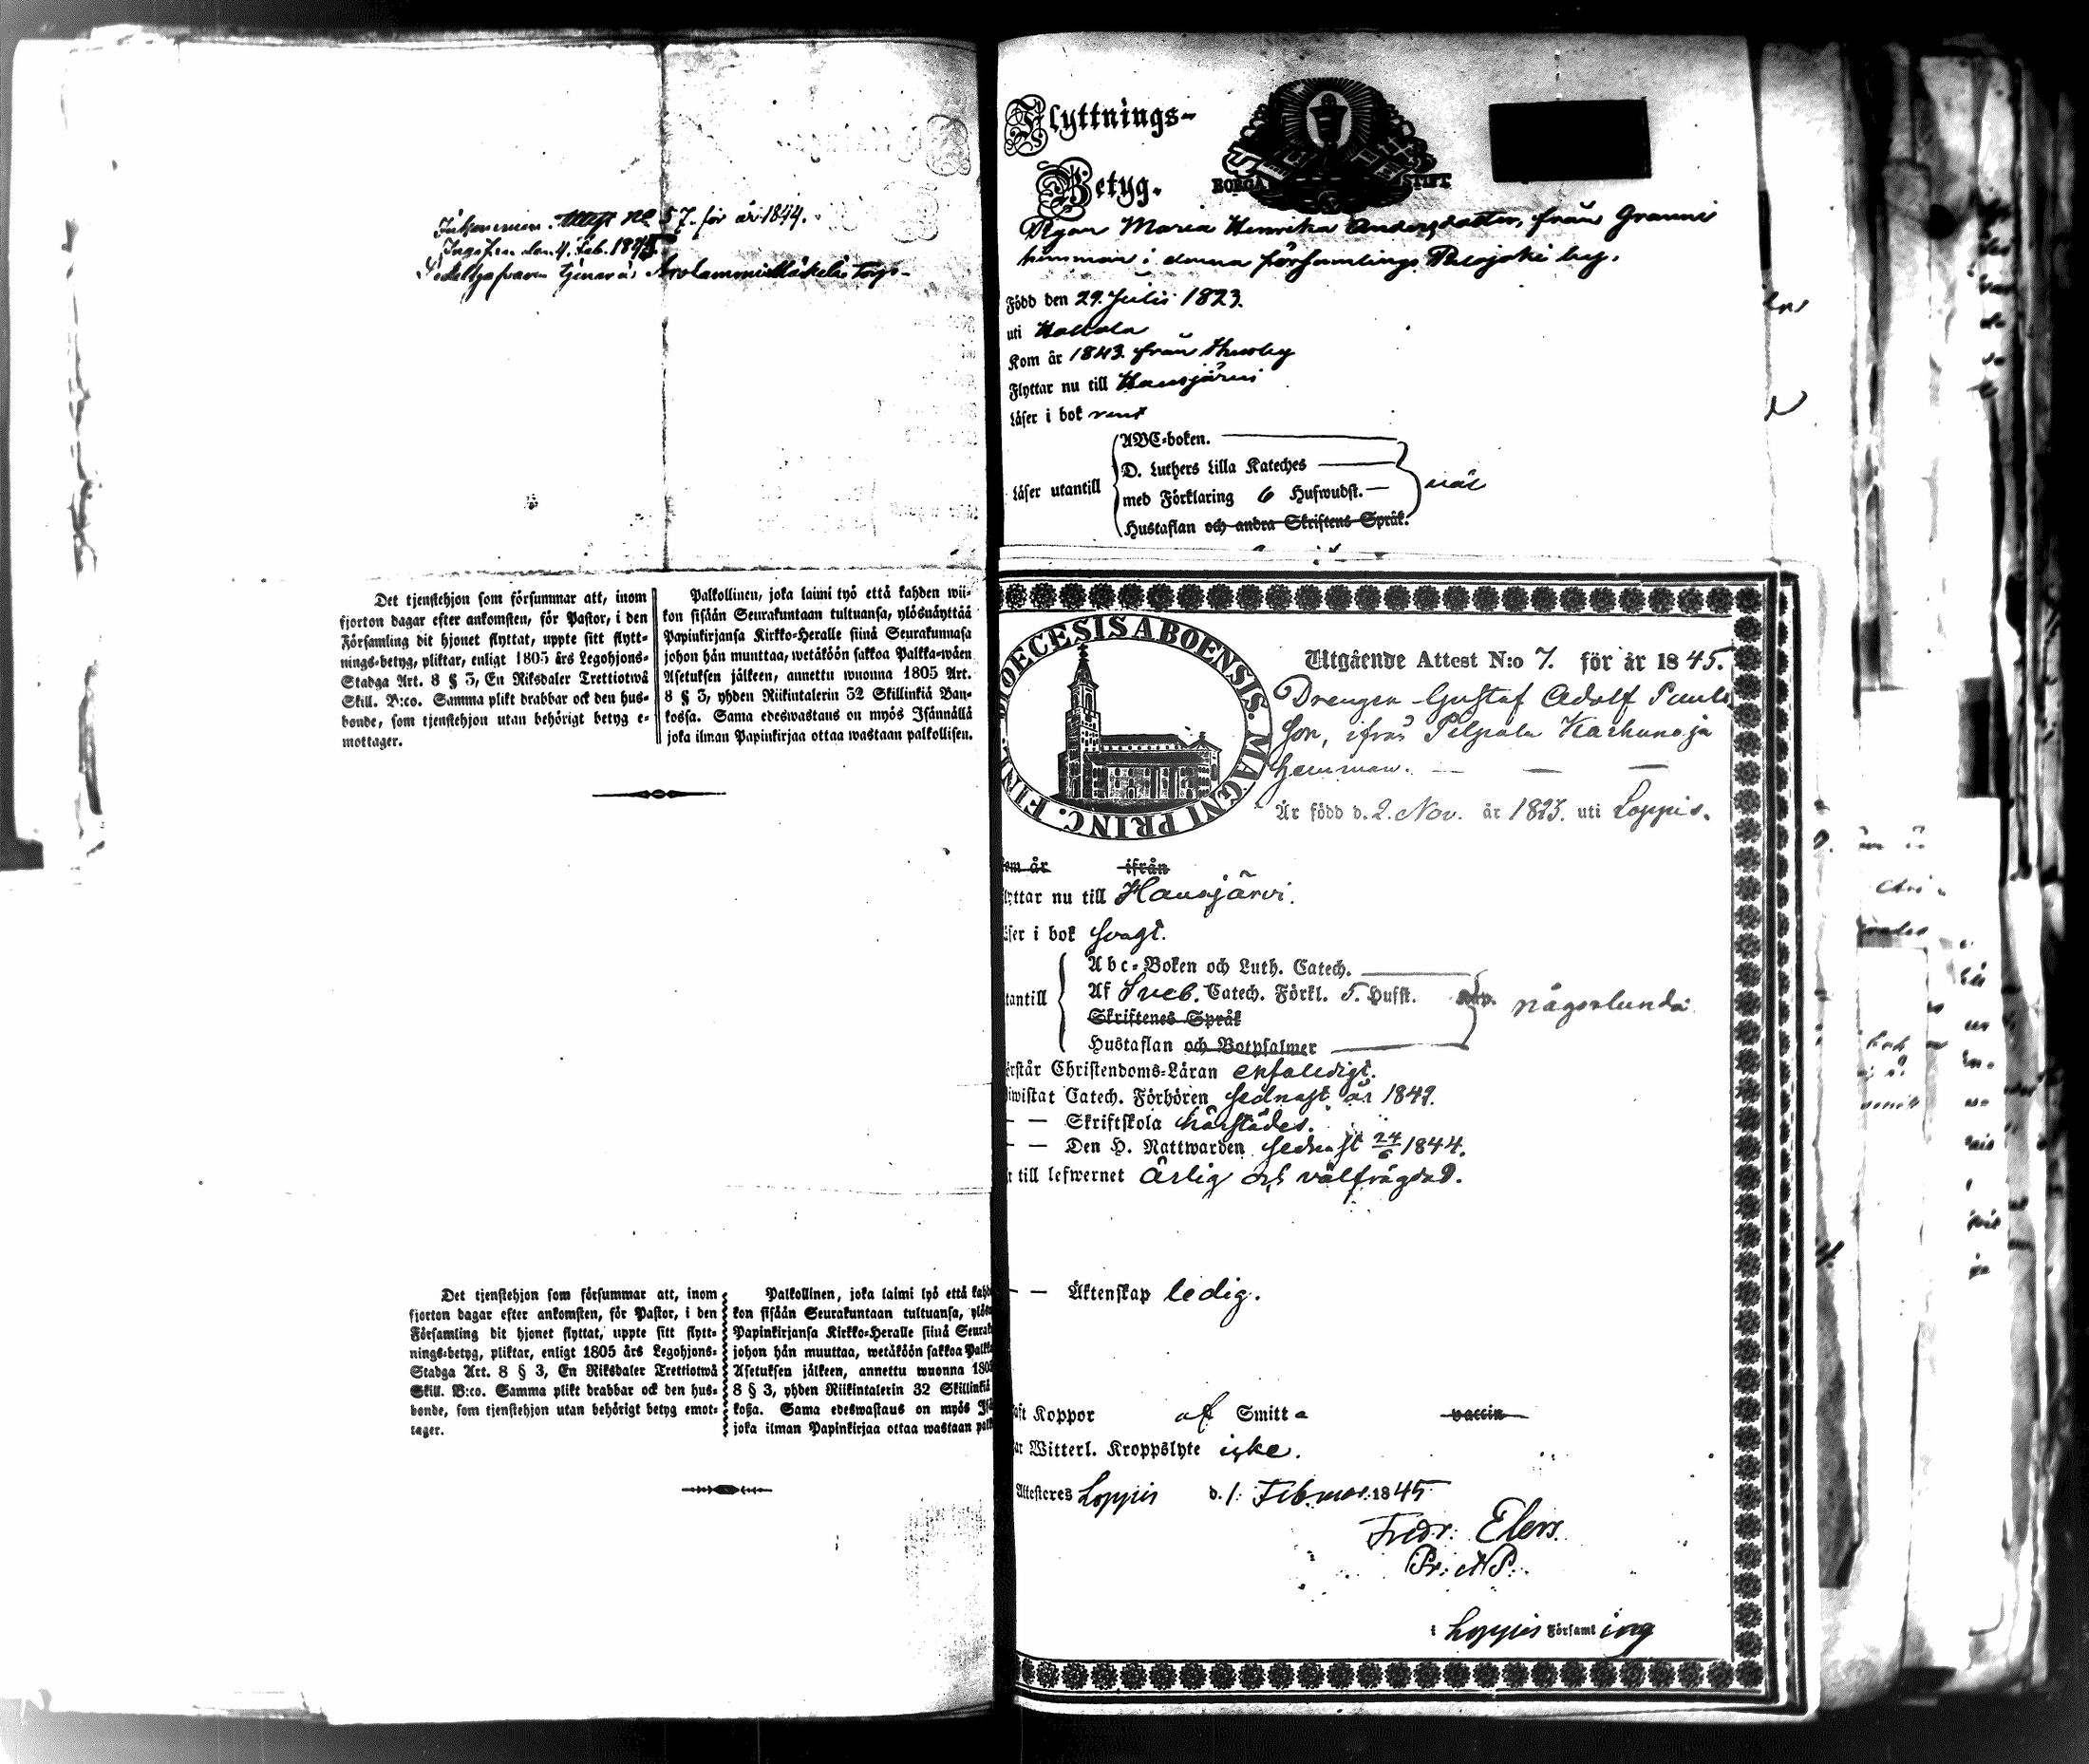 Inkommen Attest No 57. för år 1844.
den 4. Feb. 1845
tjenar å Arolammi Mäkelä Torp
Det tjenstehjon som försummar att, inom
fjorton dagar efter ankomsten, för Pastor, i den
Församling dit hjonet flyttat, uppte sitt flytt-
nings-betyg, pliktar, enligt 1805 års Legohjons-
Stadga Art. 8 § 3, En Riksdaler Trettiotwå
Skill. B:co. Samma plikt drabbar ock den hus-
bonde, som tjenstehjon utan behörigt betyg e-
mottager.
Palkollinen, joka laimi lyö että kahden wii-
kon sisään Seurakuntaan tultuansa, ylösnäyttää
Papinkirjansa Kirkko-Heralle siinä Seurakunnasa
johon hän muuttaa, wetäköön sakkoa Palkka-wäen
Asetuksen jälkeen, annettu wuonna 1805 Art.
8 § 3, yhden Riikintalerin 32 Skillinkiä Ban-
kossa. Sama edeswastaus on myös Isännällä
joka ilman Papinkirjaa ottaa wastaan palkollisen.
Det tjenstehjon som försummar att, inom
fjorton dagar efter ankomsten, för Pastor, i den
Församling dit hjonet flyttat, uppte sitt flytt-
nings-betyg, pliktar, enligt 1805 års Legohjons-
Stadga Art. 8 § 3, En Riksdaler Trettiotwå
Skill. B:co. Samma plikt drabbar ock den hus-
bonde, som tjenstehjon utan behörigt betyg emot-
tager.
Palkollinen, joka laimi lyö että
kon sisään Seurakuntaan tultuansa,
Papinkirjansa Kirkko-Heralle siinä
johon hän muuttaa, wetäköön sakkoa
Asetuksen jälkeen, annettu wuonna
8 § 3, yhden Riikintalerin 32 Skillinkiä
koßa. Sama edeswastaus on myös
joka ilman Papinkirjaa ottaa wastaan
Flyttnings-
Betyg.
BORGÅ STIFT
Pigan Maria Henrika Andersdotter, från Granni
hemman i denna församlings Palojoki by.
Född den 29. Julii 1823.
uti Hollola
Kom år 1843. från Husby
Flyttar nu till Hausjärvi
Läser i bok rent
Läser utantill
ABC-boken.
D. Luthers Lilla Kateches
med Förklaring 6 Hufwudst.
Hustaflan och andra Skriftens Språk.
DIOECESIS ABOENSIS. MAGNI PRINC. FINL.
Utgående Attest N:o 7. för år 1845.
Drengen Gustaf Adolf Pauls
son, ifrån Pilpala Karhunoja
hemman.
Är född d. 2. Nov. år 1823. uti Loppis.
Kom år ifrån
Flyttar nu till Hausjärvi.
Läser i bok svagt.
utantill
Abc-Boken och Luth. Catech.
Af Sveb. Catech. Förkl. 5. Hufst.
någorlunda
Skriftenes Språk
Hustaflan och Botpsalmer
Förstår Christendoms-Läran enfaldigt.
Biwistat Catech. Förhören sednast år 1842.
— — Skriftskola härstädes.
— — Den H. Nattwarden sednast 24/6 1844.
Är till lefwernet ärlig och välfrägdad.
— — Äktenskap ledig.
Haft Koppor af Smitta vaccin
Har Witterl. Kroppslyte icke.
Attesteres Loppis d. 1. Februar. 1845
Fredr: Elers.
Pr: AP.
i Loppis Församling